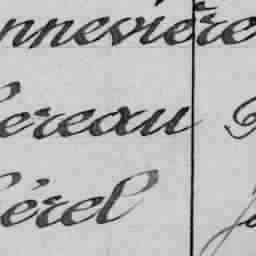 nnevière
ereau
érel